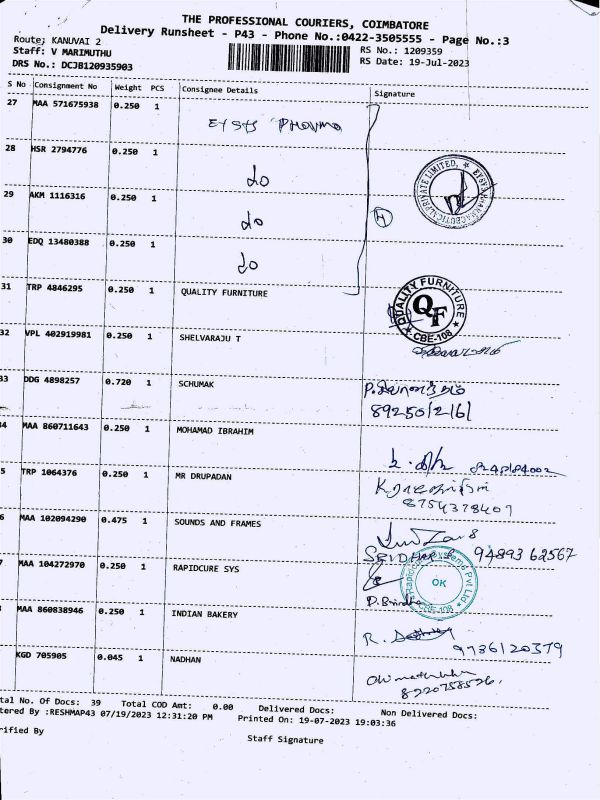 THE PROFESSIONAL COURIERS, COIMBATORE
Delivery Runsheet - P43 - Phone No.:0422-3505555 - Page No.:3
Route; KANUVAI 2
Staff: V MARIMUTHU
DRS No.: DCJB120935903
RS No.: 1209359
RS Date: 19-Jul-2023
S No Consignment No Weight PCS Consignee Details Signature
27 MAA 571675938 0.250 1
28 HSR 2794776 0.250 1 do
29 AKM 1116316 0.250 1 do
30 EDQ 13480388 0.250 1 do
31 TRP 4846295 0.250 1 QUALITY FURNITURE
QUALITY FURNITURE
QF
CBE-108
32 VPL 402919981 0.250 1 SHELVARAJU T
33 DDG 4898257 0.720 1 SCHUMAK
8925012161
4 MAA 860711643 0.250 1 MOHAMAD IBRAHIM
5 TRP 1064376 0.250 1 MR DRUPADAN
8754378401
6 MAA 102094290 0.475 1 SOUNDS AND FRAMES
SRIDHAR 94893 62567
7 MAA 104272970 0.250 1 RAPIDCURE SYS
Rapidcure Systems Pvt Ltd
OK
CBE-108
D. Brindha
MAA 860838946 0.250 1 INDIAN BAKERY
R. 9736120379
KGD 705905 0.045 1 NADHAN
8220758526.
tal No. Of Docs: 39 Total COD Amt: 0.00 Delivered Docs: Non Delivered Docs:
tered By :RESHMAP43 07/19/2023 12:31:20 PM Printed On: 19-07-2023 19:03:36
rified By Staff Signature